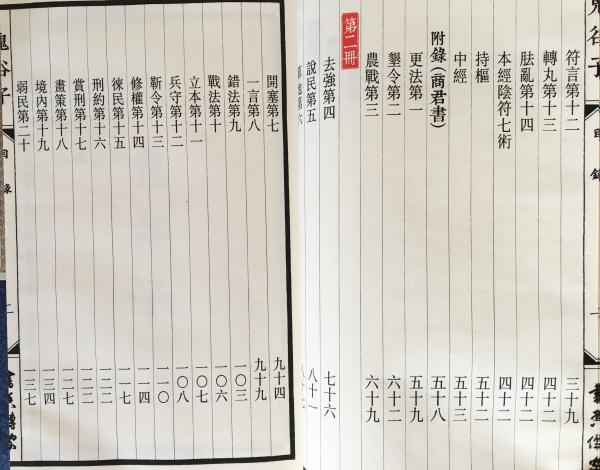 鬼谷子
目錄
一
符言第十二 三十九
轉丸第十三 四十二
胠亂第十四 四十二
本經陰符七術 四十二
持樞 五十二
中經 五十三
附錄(商君書) 五十八
更法第一 五十九
墾令第二 六十二
農戰第三 六十九
第二冊
去強第四 七十六
說民第五 八十一
第六
開塞第七 九十四
一言第八 九十九
錯法第九 一〇三
戰法第十 一〇六
立本第十一 一〇七
兵守第十二 一〇八
靳令第十三 一一〇
修權第十四 一一四
徠民第十五 一一七
刑約第十六 一二二
賞刑第十七 一二二
畫策第十八 一二七
境內第十九 一三四
弱民第二十 一三七
鬼谷子
目錄
二